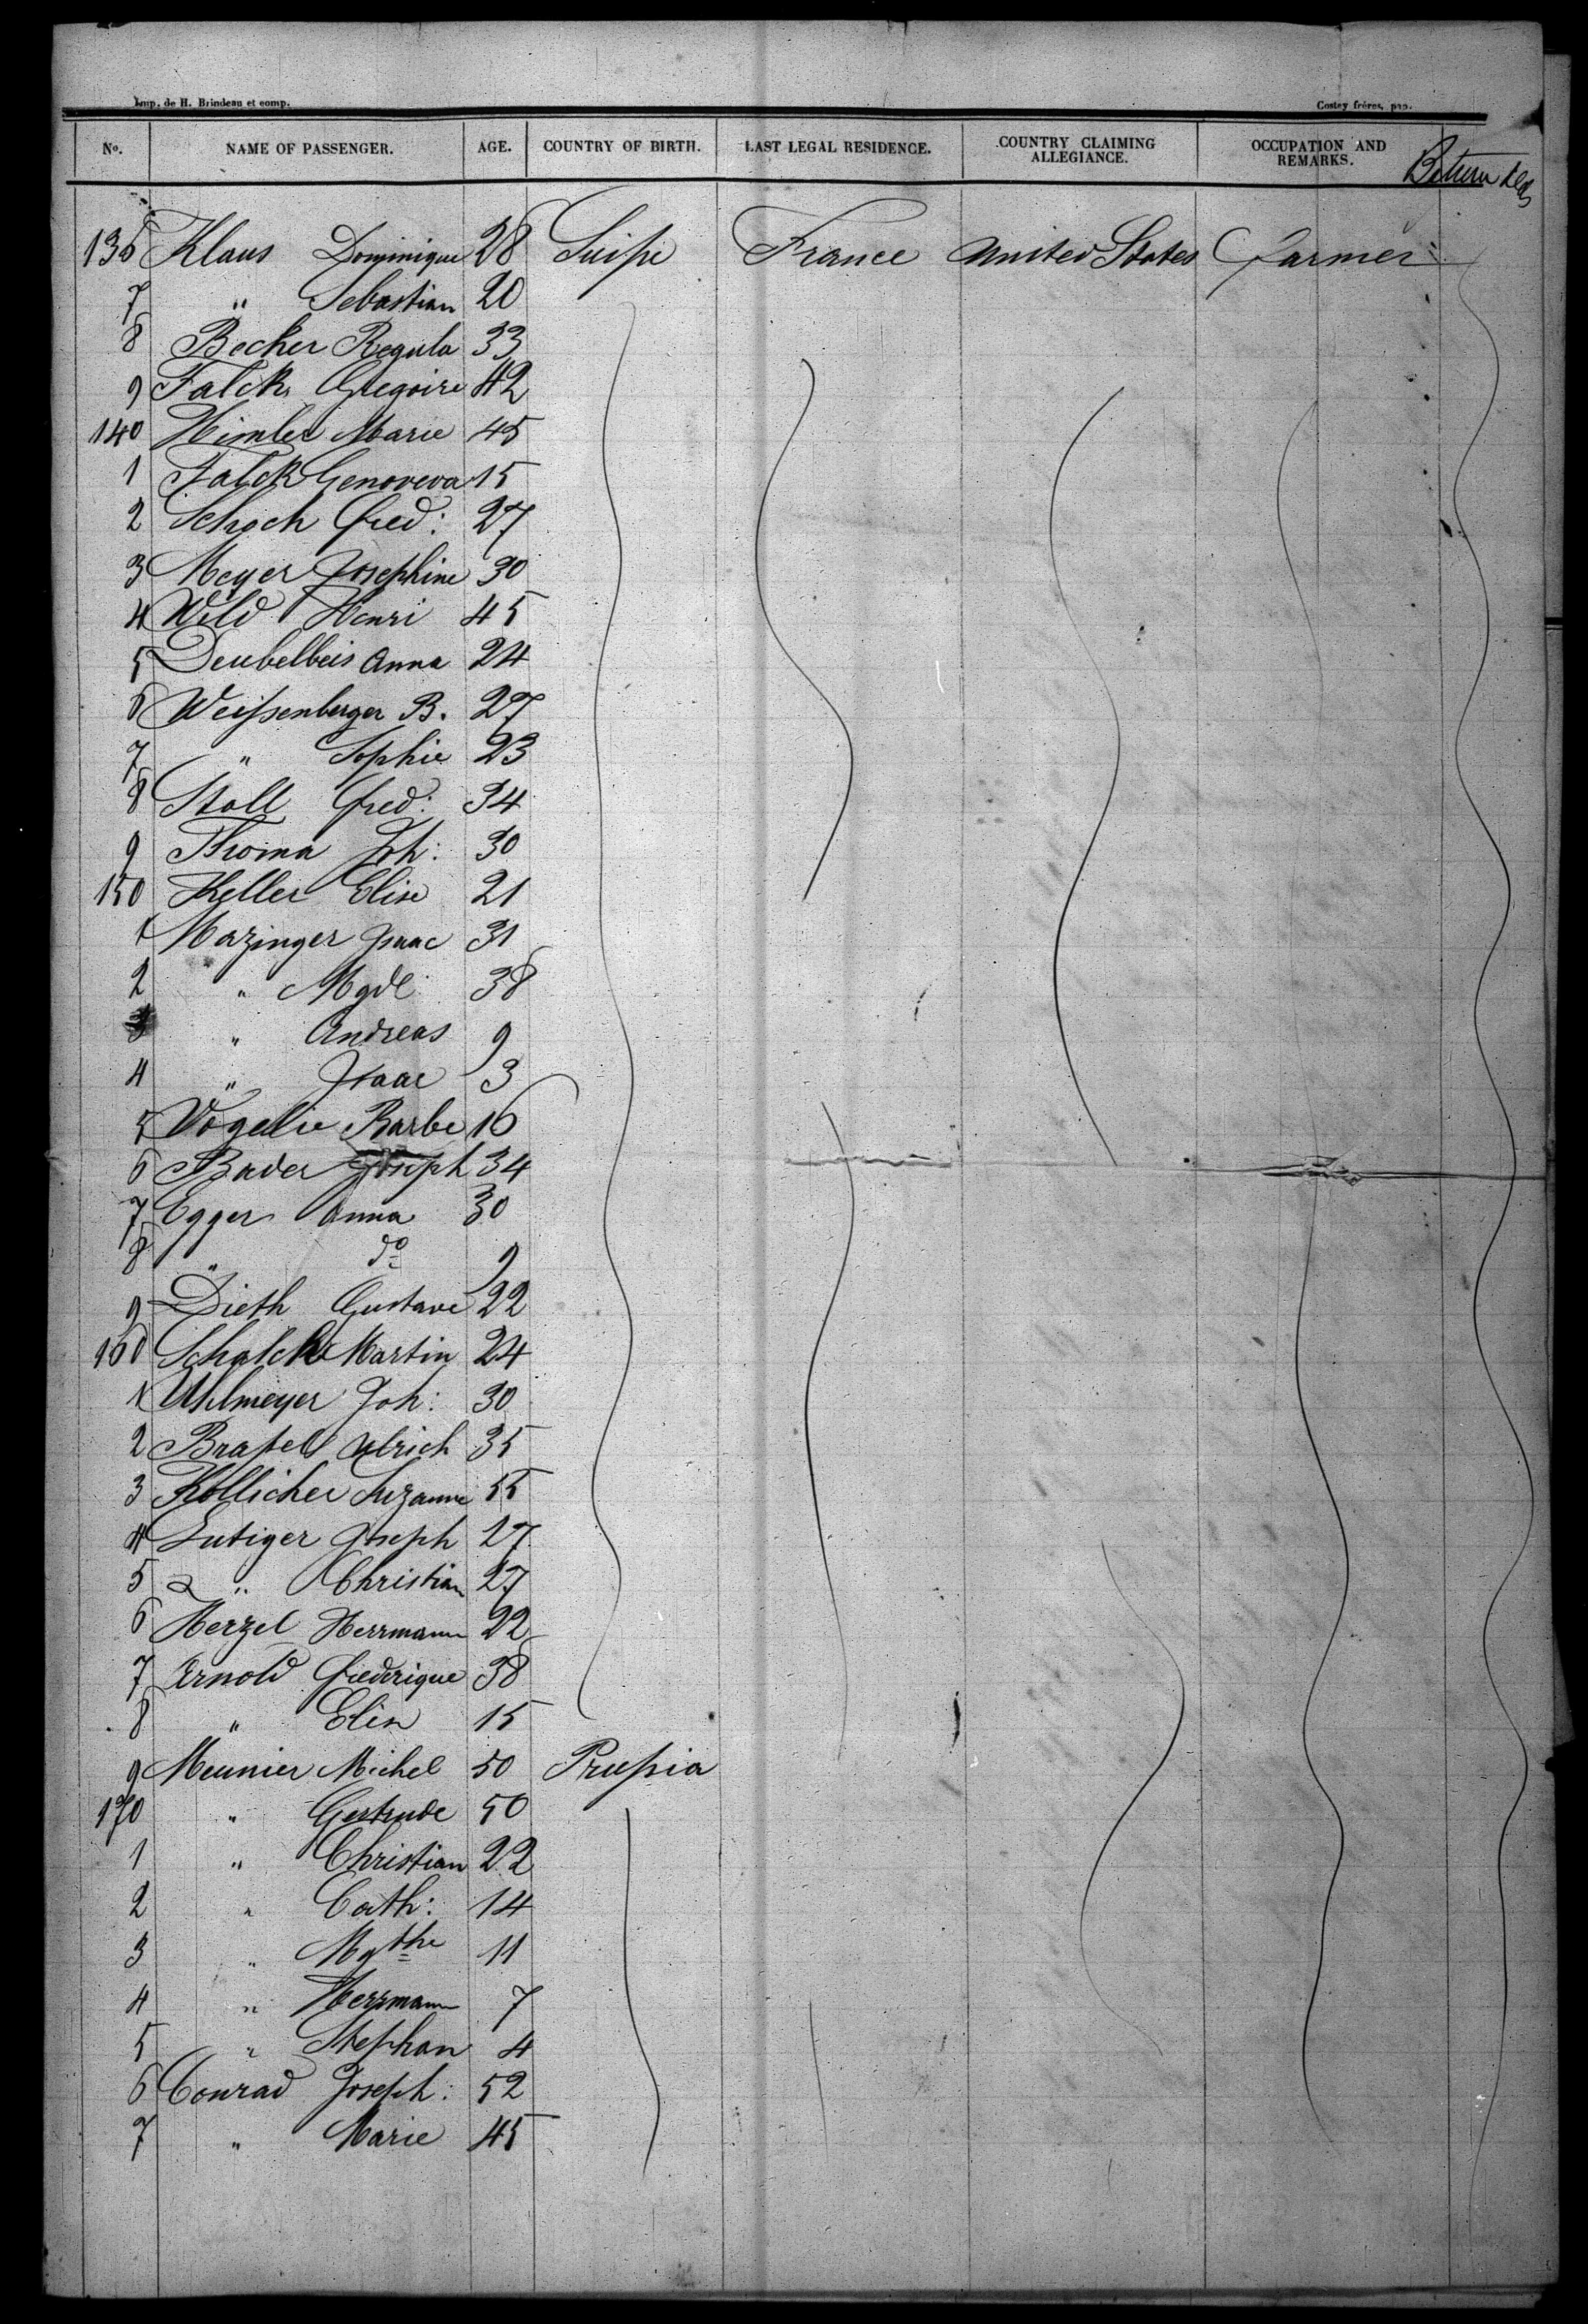 Imp. de H. Brindeau et comp. Costey frères, pap.
No. NAME OF PASSENGER. AGE. COUNTRY OF BIRTH. LAST LEGAL RESIDENCE. COUNTRY CLAIMING ALLEGIANCE. OCCUPATION AND REMARKS. Between decks
136 Klaus Dominique 28 Suisse France United States Farmer
7 " Sebastian 20
8 Becker Regula 33
9 Falck Gregoire 42
140 Himler Marie 45
1 Falck Genoveva 15
2 Schoch Fred: 27
3 Meyer Josephine 30
4 Wild Henri 45
5 Deubelbeis Anna 24
6 Weissenberger B. 27
7 " Sophie 23
8 Stoll Fred: 34
9 Thoma Joh: 30
150 Keller Elise 21
1 Mazinger Isaac 31
2 " Mgdl: 38
3 " Andreas 9
4 " Isaac 3
5 Vögelie Barbe 16
6 Bader Joseph 34
7 Egger Anna 30
8 " do 9
9 Dieth Gustave 22
160 Schalck Martin 24
1 Uhlmeyer Joh: 30
2 Brassel Ulrich 35
3 Kollicher Suzanne 55
4 Lutiger Joseph 27
5 " Christian 27
6 Herzel Herrmann 22
7 Arnold Frederique 38
8 " Elisa 15
9 Meunier Michel 50 Prussia
170 " Gertrude 50
1 " Christian 22
2 " Cath: 14
3 " Mgthe 11
4 " Herrmann 7
5 " Stephan 4
6 Conrad Joseph: 52
7 " Marie 45